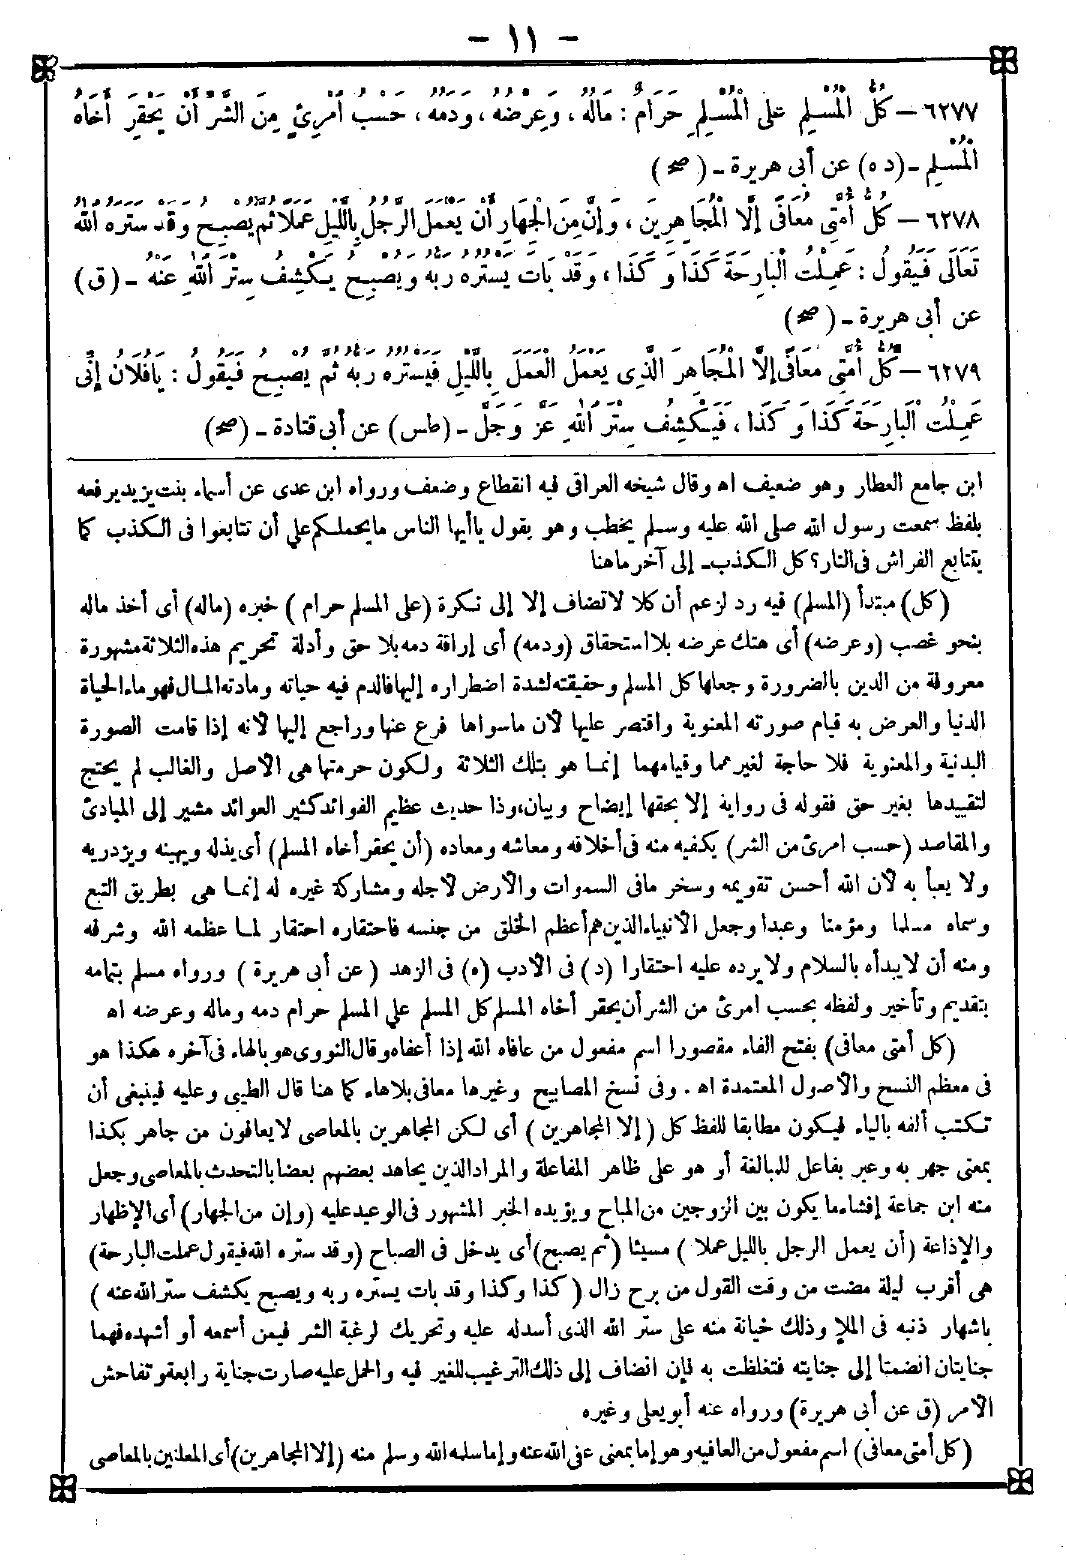 - ١١ -
٦٢٧٧ — كُلُّ الْمُسْلِمِ عَلَى الْمُسْلِمِ حَرَامٌ : مَالُهُ ، وَعِرْضُهُ ، وَدَمُهُ ، حَسْبُ امْرِئٍ مِنَ الشَّرِّ أَنْ يَحْقِرَ أَخَاهُ
الْمُسْلِمَ - (د ه) عن أبى هريرة - ( صح )
٦٢٧٨ — كُلُّ أُمَّتِى مُعَافًى إلَّا الْمُجَاهِرِينَ ، وَإنَّ مِنَ الْجِهَارِ أَنْ يَعْمَلَ الرَّجُلُ بِاللَّيْلِ عَمَلًا ثُمَّ يُصْبِحُ وَقَدْ سَتَرَهُ اللهُ
تَعَالَى فَيَقُولُ : عَمِلْتُ الْبَارِحَةَ كَذَا وَ كَذَا ، وَقَدْ بَاتَ يَسْتُرُهُ رَبُّهُ وَيُصْبِحُ يَكْشِفُ سِتْرَ اللهِ عَنْهُ - (ق)
عن أبى هريرة - ( صح )
٦٢٧٩ — كُلُّ أُمَّتِى مُعَافًى إلَّا الْمُجَاهِرَ الَّذِى يَعْمَلُ الْعَمَلَ بِاللَّيْلِ فَيَسْتُرُهُ رَبُّهُ ثُمَّ يُصْبِحُ فَيَقُولُ : يَافُلَانُ إنِّى
عَمِلْتُ الْبَارِحَةَ كَذَا وَ كَذَا ، فَيَكْشِفُ سِتْرَ اللهِ عَزَّ وَجَلَّ - (طس) عن أبى قتادة - (صح)
ابن جامع العطار وهو ضعيف اه وقال شيخه العراقى فيه انقطاع وضعف ورواه ابن عدى عن أسماء بنت يزيد يرفعه
بلفظ سمعت رسول الله صلى الله عليه وسلم يخطب وهو يقول يا أيها الناس ما يحملكم على أن تتابعوا فى الكذب كما
يتتابع الفراش فى النار؟ كل الكذب - إلى آخر ما هنا
(كل) مبتدأ (المسلم) فيه رد لزعم أن كلا لا تضاف إلا إلى نكرة (على المسلم حرام ) خبره (ماله) أى أخذ ماله
بنحو غصب (وعرضه) أى هتك عرضه بلا استحقاق (ودمه) أى إراقة دمه بلا حق وأدلة تحريم هذه الثلاثة مشهورة
معروفة من الدين بالضرورة وجعلها كل المسلم وحقيقته لشدة اضطراره إليها فالدم فيه حياته ومادته المال فهو ماء الحياة
الدنيا والعرض به قيام صورته المعنوية واقتصر عليها لأن ماسواها فرع عنها وراجع إليها لأنه إذا قامت الصورة
البدنية والمعنوية فلا حاجة لغيرهما وقيامهما إنما هو بتلك الثلاثة ولكون حرمتها هى الأصل والغالب لم يحتج
لتقييدها بغير حق فقوله فى رواية إلا بحقها إيضاح وبيان، وذا حديث عظيم الفوائد كثير العوائد مشير إلى المبادئ
والمقاصد (حسب امرئ من الشر) يكفيه منه فى أخلاقه ومعاشه ومعاده (أن يحقر أخاه المسلم) أى يذله ويهينه ويزدريه
ولا يعبأ به لأن الله أحسن تقويمه وسخر مافى السموات والأرض لأجله ومشاركة غيره له إنما هى بطريق التبع
وسماه مسلما ومؤمنا وعبدا وجعل الأنبياء الذين هم أعظم الخلق من جنسه فاحتقاره احتقار لما عظمه الله وشرفه
ومنه أن لايبدأه بالسلام ولايرده عليه احتقارا (د) فى الأدب (ه) فى الزهد ( عن أبى هريرة ) ورواه مسلم بتمامه
بتقديم وتأخير ولفظه بحسب امرئ من الشر أن يحقر أخاه المسلم كل المسلم على المسلم حرام دمه وماله وعرضه اه
(كل أمتى معافى) بفتح الفاء مقصورا اسم مفعول من عافاه الله إذا أعفاه وقال النووى هو بالهاء فى آخره هكذا هو
فى معظم النسخ والأصول المعتمدة اه . وفى نسخ المصابيح وغيرها معافى بلا هاء كما هنا قال الطيبى وعليه فينبغى أن
تكتب ألفه بالياء فيكون مطابقا للفظ كل (إلا المجاهرين ) أى لكن المجاهرين بالمعاصى لا يعافون من جاهر بكذا
بمعنى جهر به وعبر بفاعل للمبالغة أو هو على ظاهر المفاعلة والمراد الذين يجاهد بعضهم بعضا بالتحدث بالمعاصى وجعل
منه ابن جماعة إفشاء ما يكون بين الزوجين من المباح ويؤيده الخبر المشهور فى الوعيد عليه (وإن من الجهار) أى الإظهار
والإذاعة (أن يعمل الرجل بالليل عملا ) مسيئا (ثم يصبح) أى يدخل فى الصباح (وقد ستره الله فيقول عملت البارحة)
هى أقرب ليلة مضت من وقت القول من برح زال ( كذا وكذا وقد بات يستره ربه ويصبح يكشف ستر الله عنه )
باشهار ذنبه فى الملإ وذلك خيانة منه على ستر الله الذى أسدله عليه وتحريك لرغبة الشر فيمن أسمعه أو أشهده فهما
جنايتان انضمتا إلى جنايته فتغلظت به فإن انضاف إلى ذلك الترغيب للغير فيه والحمل عليه صارت جناية رابعة وتفاحش
الأمر (ق عن أبى هريرة) ورواه عنه أبو يعلى وغيره
(كل أمتى معافى) اسم مفعول من العافيه وهو إما بمعنى عفى الله عنه وإما سلمه الله وسلم منه (إلا المجاهرين) أى المعلنين بالمعاصى